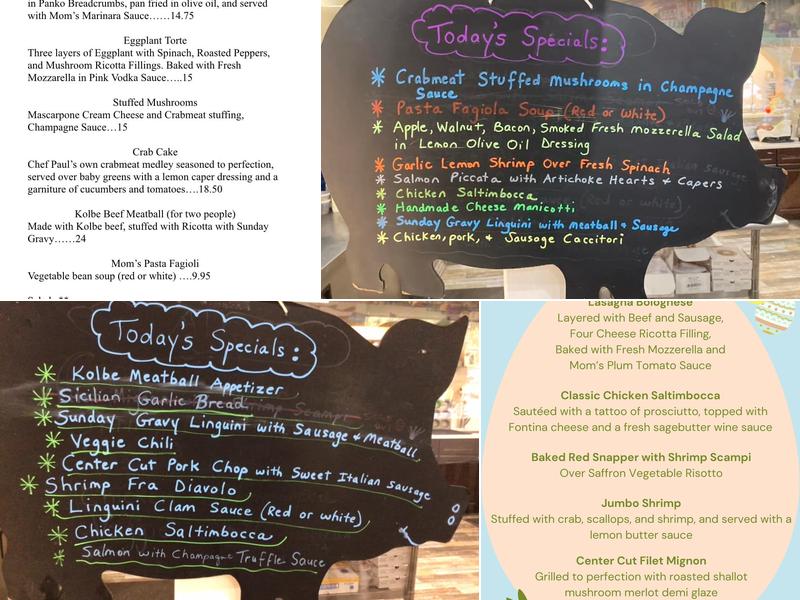 in Panko Breadcrumbs, pan fried in olive oil, and served
with Mom's Marinara Sauce……14.75
Eggplant Torte
Three layers of Eggplant with Spinach, Roasted Peppers,
and Mushroom Ricotta Fillings. Baked with Fresh
Mozzarella in Pink Vodka Sauce…..15
Stuffed Mushrooms
Mascarpone Cream Cheese and Crabmeat stuffing,
Champagne Sauce…15
Crab Cake
Chef Paul's own crabmeat medley seasoned to perfection,
served over baby greens with a lemon caper dressing and a
garniture of cucumbers and tomatoes….18.50
Kolbe Beef Meatball (for two people)
Made with Kolbe beef, stuffed with Ricotta with Sunday
Gravy……24
Mom's Pasta Fagioli
Vegetable bean soup (red or white) ….9.95
Today's Specials:
* Crabmeat Stuffed Mushrooms in Champagne
Sauce
* Pasta Fagiola Soup (Red or White)
* Apple, Walnut, Bacon, Smoked Fresh mozzerella Salad
in Lemon Olive Oil Dressing
* Garlic Lemon Shrimp Over Fresh Spinach
* Salmon Piccata with Artichoke Hearts & Capers
* Chicken Saltimbocca
* Handmade Cheese manicotti
* Sunday Gravy Linguini with meatball & Sausage
* Chicken, pork, & Sausage Caccitori
Today's Specials:
* Kolbe Meatball Appetizer
* Sicilian Garlic Bread
* Sunday Gravy Linguini with Sausage & Meatball
* Veggie Chili
* Center Cut Pork Chop with Sweet Italian Sausage
* Shrimp Fra Diavolo
* Linguini Clam Sauce (Red or white)
* Chicken Saltimbocca
* Salmon with Champagne Truffle Sauce
Lasagna Bolognese
Layered with Beef and Sausage,
Four Cheese Ricotta Filling,
Baked with Fresh Mozzerella and
Mom's Plum Tomato Sauce
Classic Chicken Saltimbocca
Sautéed with a tattoo of prosciutto, topped with
Fontina cheese and a fresh sagebutter wine sauce
Baked Red Snapper with Shrimp Scampi
Over Saffron Vegetable Risotto
Jumbo Shrimp
Stuffed with crab, scallops, and shrimp, and served with a
lemon butter sauce
Center Cut Filet Mignon
Grilled to perfection with roasted shallot
mushroom merlot demi glaze